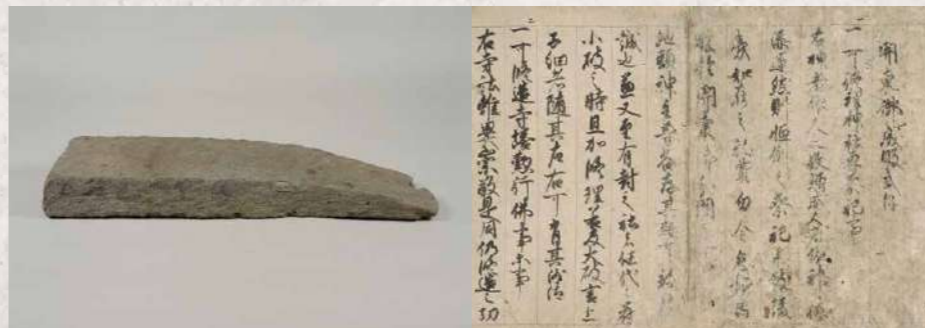 關東御成敗式目
一 可修理神社専祭祀事
右神者依人之敬増威人者依神之徳
添運然則恒例之祭祀不致陵
夷如在之礼奠勿令怠慢因
茲於關東御分
地頭神主等各存其趣可致精
誠也兼又至有封之社者任代々符
小破之時且加修理若及大破言上
子細者隨其左右可有其沙汰
一可修造寺塔勤行佛事等事
右寺社雖異崇敬是同仍修造之功